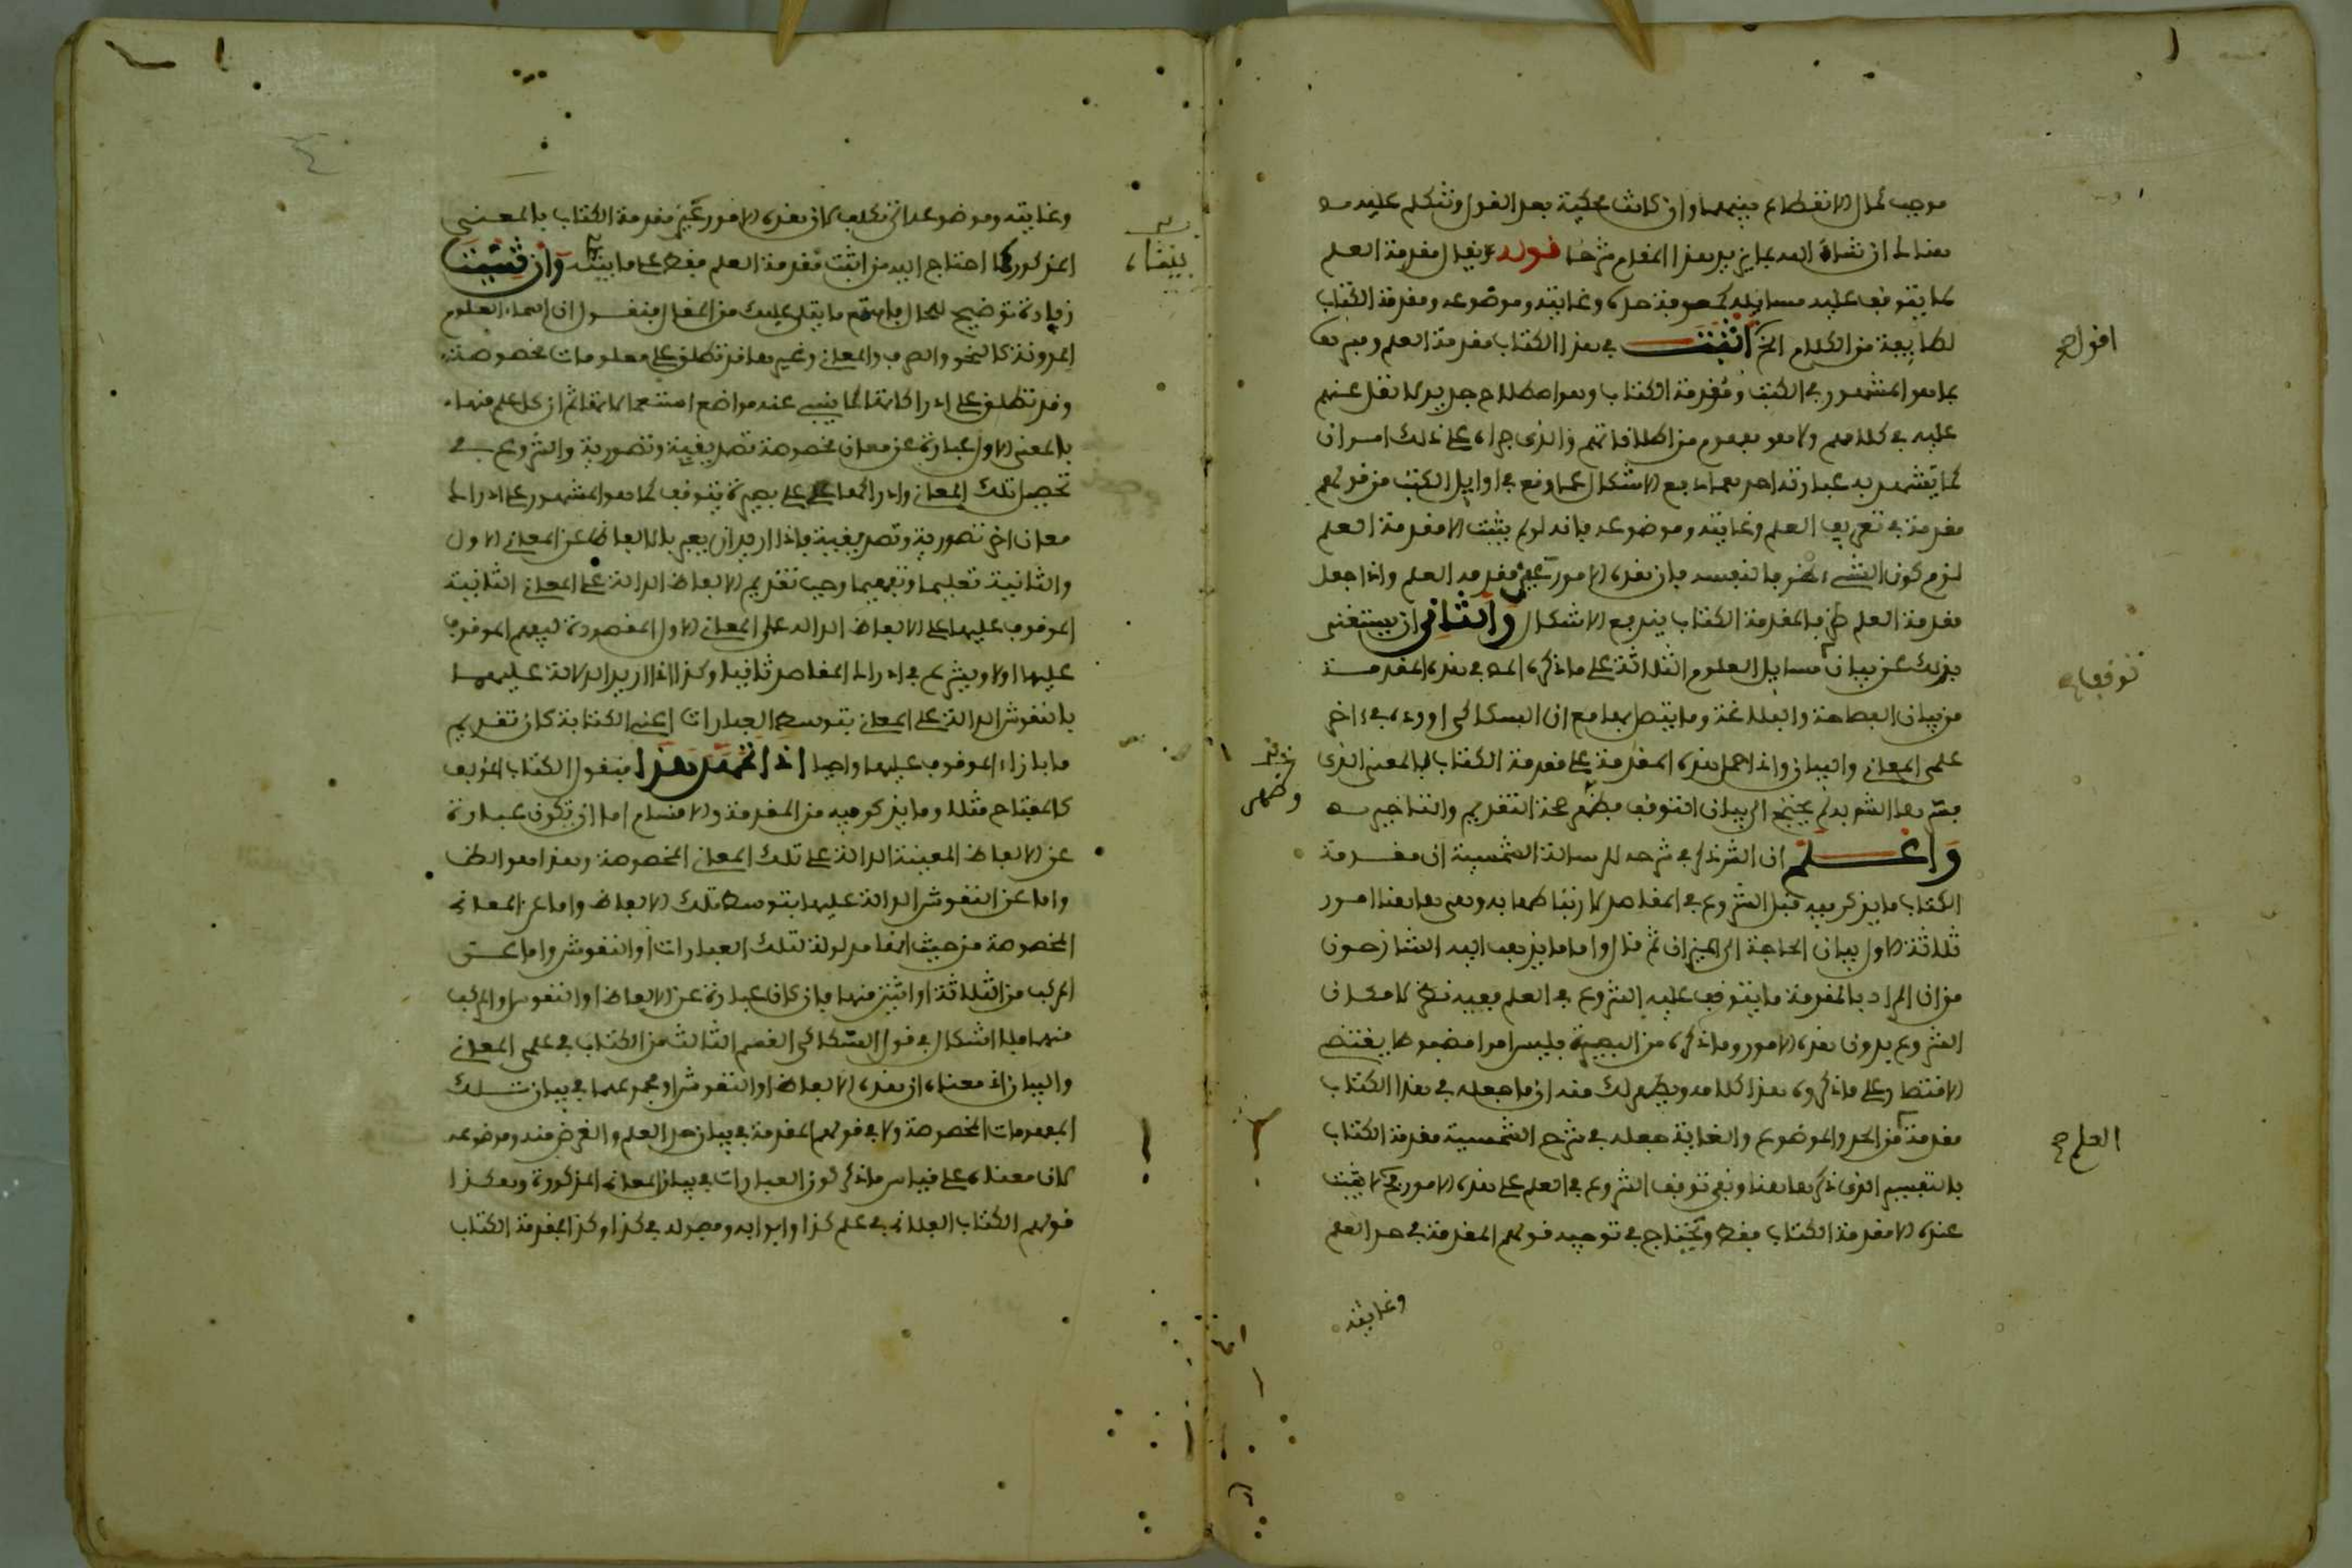 موجب لكمال الانقطاع بينهما وان كانت محكية بعد القول ونتكلم عليه
هنالك ان شاء الله بما يزيد هذا المقام شرحا قوله يقال مقدمة العلم
لما يتوقف عليه مسايله كمعرفة حده وغايته وموضوعه ومقدمة الكتاب
لطايفة من الكلام الخ اثبت في هذا الكتاب مقدمة العلم وفسرها
بما هو المشهور في الكتب ومقدمة الكتاب وهو اصطلاح جديد لا نقل عنهم
عليه في كلامهم ولا هو مفهوم من اطلاقاتهم والذي جراه على ذلك امران
كما يشهد به عبارته احدهما دفع الاشكال عما وقع في اوايل الكتب من قولهم
مقدمة في تعريف العلم وغايته وموضوعه فانه لو لم يثبت الا مقدمة العلم
لزم كون الشيء ظرفا لنفسه فان هذه الامور عين مقدمة العلم واذا جعل
مقدمة العلم ظرفا لمقدمة الكتاب يندفع الاشكال والثاني ان يستغني
بذلك عن بيان مسايل العلوم الثلاثة على ما ذكره المص في هذه المقدمة
من بيان الفصاحة والبلاغة وما يتصل بها مع ان السكاكي اورده في اخر
علمي المعاني والبيان واذا حمل هذه المقدمة على مقدمة الكتاب بالمعنى الذي
فسرها الشر به لم يحتج الى بيان التوقف فظهر صحة التقديم والتاخير
واعلم ان الشر ذكر في شرحه للرسالة الشمسية ان مقدمة
الكتاب ما يذكر فيه قبل الشروع في المقاصد لارتباطها به وهي هاهنا امور
ثلاثة الاول بيان الحاجة الى الميزان ثم قال واما ما يذهب اليه الشارحون
من ان المراد بالمقدمة ما يتوقف عليه الشروع في العلم ففيه نظر لامكان
الشروع بدون هذه الامور وما ذكره من البصيرة فليس امرا مضبوطا يقتضي
الاقتصار على ما ذكروه هذا كلامه ويظهر لك منه ان ما جعله في هذا الكتاب
مقدمة من الحد والموضوع والغاية جعله في شرح الشمسية مقدمة الكتاب
بالتفسير الذي ذكره هاهنا ونفى توقف الشروع في العلم على هذه الامور فلا يثبت
عنده الا مقدمة الكتاب فقط ويحتاج في توجيه قولهم المقدمة في حد العلم
وغايته
اقول صح
توقف
العلم صح
وظهر
وغايته وموضوعه الى تكلف لان هذه الامور عين مقدمة الكتاب بالمعنى
المذكور كما احتاج اليه من اثبت مقدمة العلم فقط على ما بينته وان شيت
زيادة توضيح للحال فاستمع ما يتلى عليك من المقال فنقول ان اسماء العلوم
المدونة كالنحو والصرف والمعاني وغيرها قد تطلق على معلومات مخصوصة
وقد تطلق على ادراكاتها كما ينبي عنه مواضع استعمالاتها ثم ان كل علم منها
بالمعنى الاول عبارة عن معان مخصوصة تصديقية وتصورية والشروع في
تحصيل تلك المعاني وادراكها على بصيرة يتوقف كما هو المشهور على ادراك
معان اخر تصورية وتصديقية فاذا اريد ان يعبر بالالفاظ عن المعاني الاول
والثانية تعليما وتفهيما وجب تقديم الالفاظ الدالة على المعاني الثانية
الموقوف عليها على الالفاظ الدالة على المعاني الاول المقصودة ليفهم الموقوف
عليها اولا ويشرع في ادراك المقاصد ثانيا وكذا اذا اريد الدلالة عليهما
بالنقوش الدالة على المعاني بتوسط العبارات اعني الكتابة كان تقديم
ما بازاء الموقوف عليها واجبا اذا تمهد هذا فنقول الكتاب المؤلف
كالمفتاح مثلا وما يذكر فيه من المقدمة والاقسام اما ان يكون عبارة
عن الالفاظ المعينة الدالة على تلك المعاني المخصوصة وهذا هو الظ
واما عن النقوش الدالة عليها بتوسط تلك الالفاظ واما عن المعاني
المخصوصة من حيث انها مدلولة لتلك العبارات او النقوش واما عن
المركب من الثلاثة او اثنين منها فان كان عبارة عن الالفاظ او النقوش او المركب
منهما فلا اشكال في قول السكاكي القسم الثالث من الكتاب في علمي المعاني
والبيان اذ معناه ان هذه الالفاظ او النقوش او مجموعهما في بيان تلك
المفهومات المخصوصة ولا في قولهم المقدمة في بيان حد العلم والغرض منه وموضوعه
لان معناه على قياس ما ذكر كون العبارات في بيان المعاني المذكورة وهكذا
قولهم الكتاب الفلاني في علم كذا وابوابه وفصوله في كذا وكذا فمقدمة الكتاب
بيناه